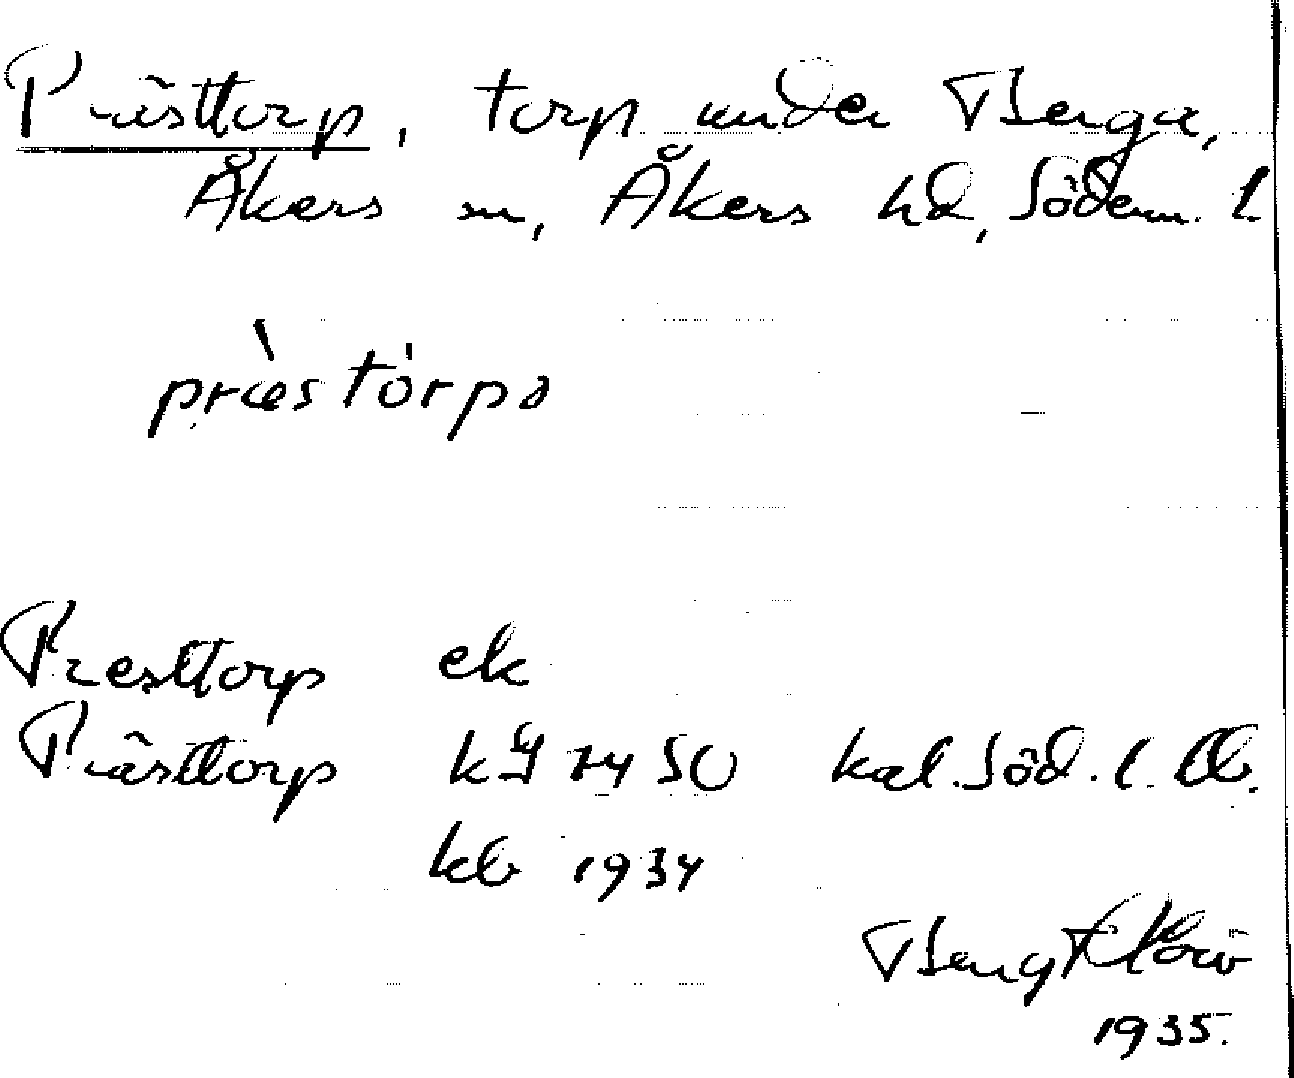 Prästtorp, torp under Berga,
Åkers sn, Åkers hd, Söderm. l
præstòrpa
Presttorp ek
Prästtorp kJ 74 SO kal. Söd. l.
kb 1934
Bengt
1935.